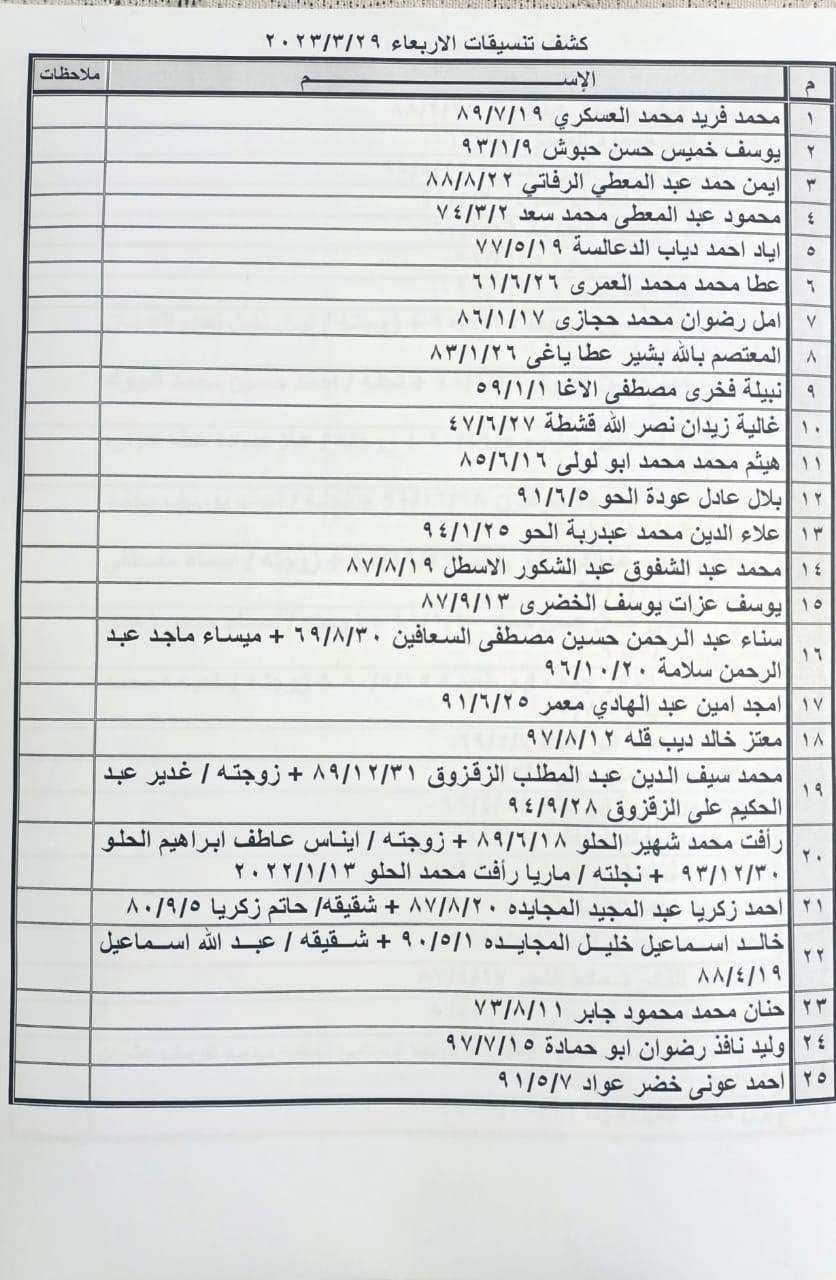 كشف تنسيقات الاربعاء ٢٠٢٣/٣/٢٩
م الإســـــــم ملاحظات
١ محمد فريد محمد العسكري ٨٩/٧/١٩
٢ يوسف خميس حسن حبوش ٩٣/١/٩
٣ ايمن حمد عبد المعطي الرفاتي ٨٨/٨/٢٢
٤ محمود عبد المعطى محمد سعد ٧٤/٣/٢
٥ اياد احمد دياب الدعالسة ٧٧/٥/١٩
٦ عطا محمد محمد العمرى ٦١/٦/٢٦
٧ امل رضوان محمد حجازى ٨٦/١/١٧
٨ المعتصم بالله بشير عطا ياغى ٨٣/١/٢٦
٩ نبيلة فخرى مصطفى الاغا ٥٩/١/١
١٠ غالية زيدان نصر الله قشطة ٤٧/٦/٢٧
١١ هيثم محمد محمد ابو لولى ٨٥/٦/١٦
١٢ بلال عادل عودة الحو ٩١/٦/٥
١٣ علاء الدين محمد عبدربة الحو ٩٤/١/٢٥
١٤ محمد عبد الشفوق عبد الشكور الاسطل ٨٧/٨/١٩
١٥ يوسف عزات يوسف الخضرى ٨٧/٩/١٣
١٦ سناء عبد الرحمن حسين مصطفى السعافين ٦٩/٨/٣٠ + ميساء ماجد عبد
الرحمن سلامة ٩٦/١٠/٢٠
١٧ امجد امين عبد الهادي معمر ٩١/٦/٢٥
١٨ معتز خالد ديب قله ٩٧/٨/١٢
١٩ محمد سيف الدين عبد المطلب الزقزوق ٨٩/١٢/٣١ + زوجته / غدير عبد
الحكيم على الزقزوق ٩٤/٩/٢٨
٢٠ رأفت محمد شهير الحلو ٨٩/٦/١٨ + زوجته / ايناس عاطف ابراهيم الحلو
٩٣/١٢/٣٠ + نجلته / ماريا رأفت محمد الحلو ٢٠٢٢/١/١٣
٢١ احمد زكريا عبد المجيد المجايده ٨٧/٨/٢٠ + شقيقه/ حاتم زكريا ٨٠/٩/٥
٢٢ خالد اسماعيل خليل المجايده ٩٠/٥/١ + شقيقه / عبد الله اسماعيل
٨٨/٤/١٩
٢٣ حنان محمد محمود جابر ٧٣/٨/١١
٢٤ وليد نافذ رضوان ابو حمادة ٩٧/٧/١٥
٢٥ احمد عونى خضر عواد ٩١/٥/٧